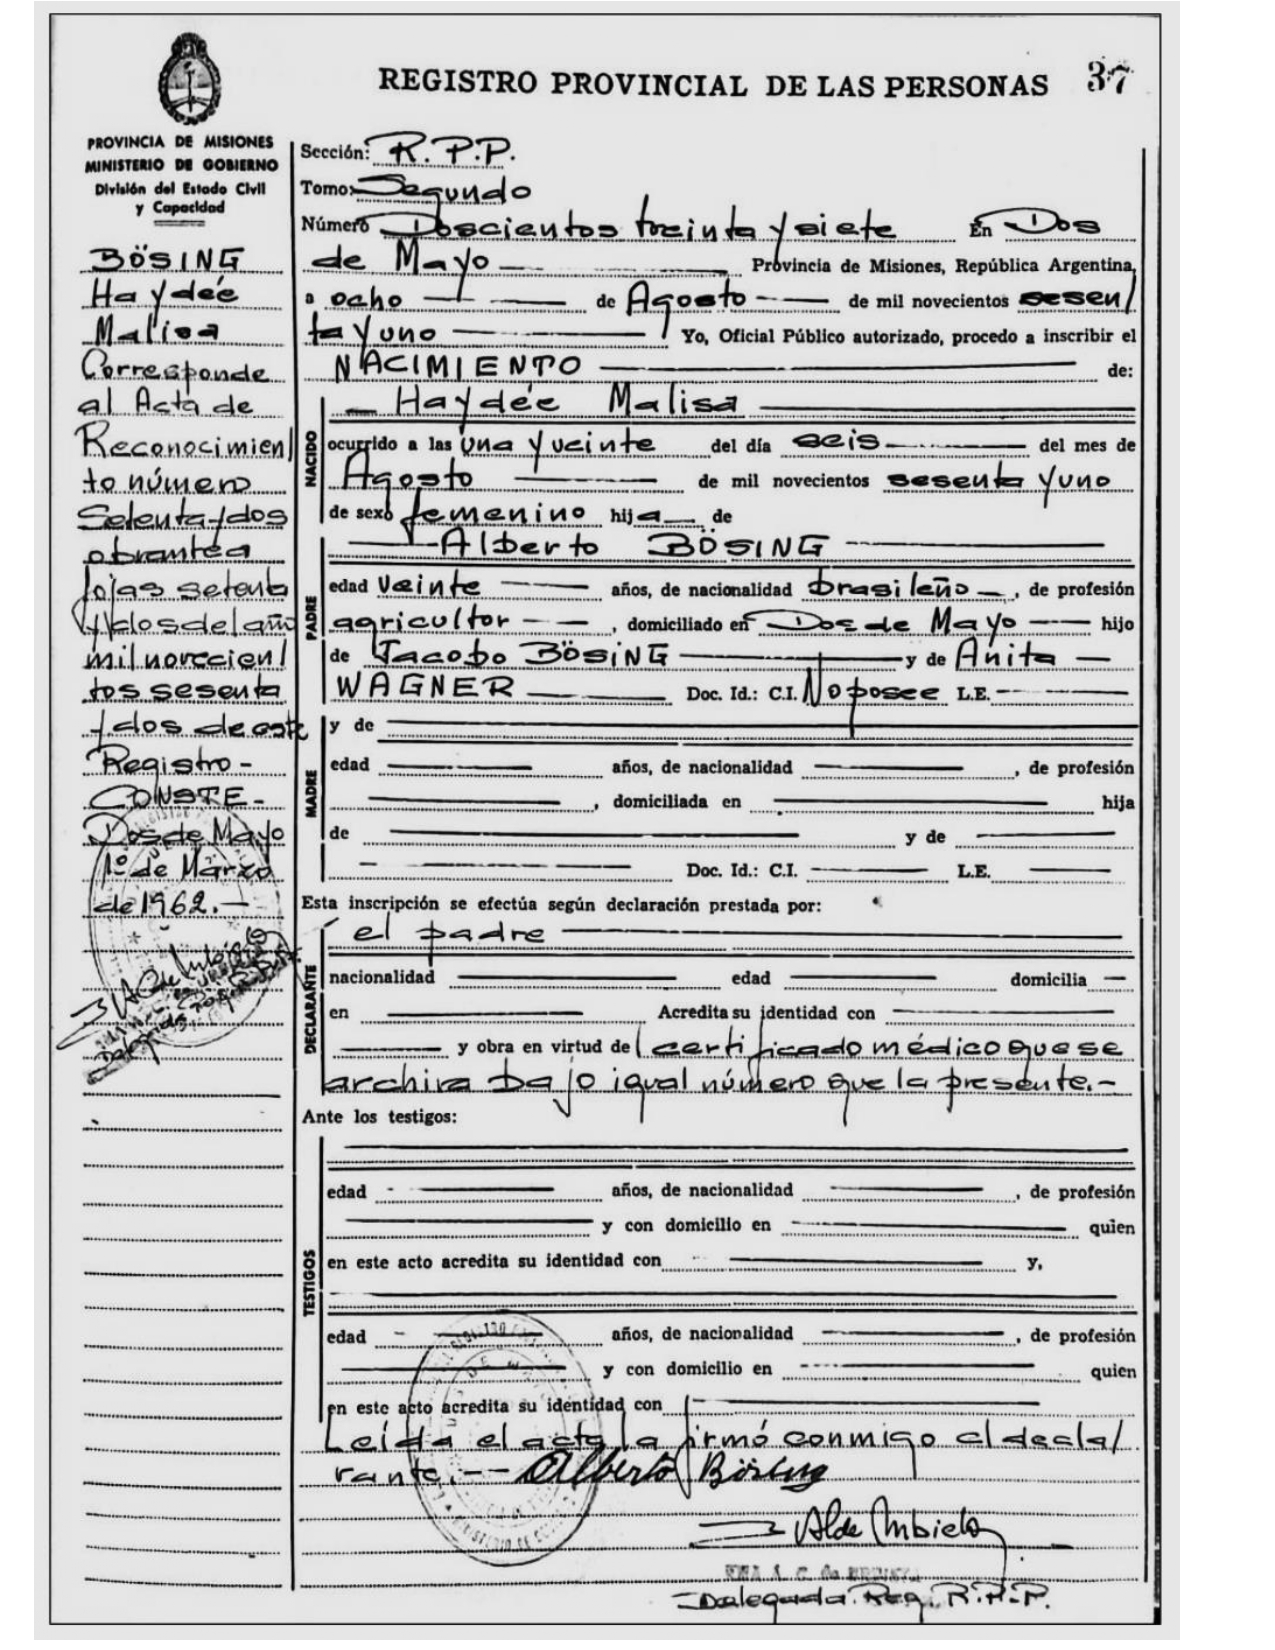 REGISTRO PROVINCIAL DE LAS PERSONAS 37
PROVINCIA DE MISIONES
MINISTERIO DE GOBIERNO
División del Estado Civil
y Capacidad
BÖSING
Haydée
Malisa
Corresponde
al Acta de
Reconocimien/
to número
Setenta y dos
obrante a
fojas setenta
y dos del año
mil novecien/
tos sesenta
y dos de este
Registro-
CONSTE-
Dos de Mayo
1º de Marzo
de 1962.-
Sección: R.P.P.
Tomo: Segundo
Número Doscientos treinta y siete En Dos
de Mayo Provincia de Misiones, República Argentina,
a ocho de Agosto de mil novecientos sesen/
ta y uno Yo, Oficial Público autorizado, procedo a inscribir el
NACIMIENTO de:
NACIDO
Haydée Malisa
ocurrido a las una y veinte del día seis del mes de
Agosto de mil novecientos sesenta y uno
de sexo femenino hija de
PADRE
Alberto BÖSING
edad veinte años, de nacionalidad brasileño, de profesión
agricultor, domiciliado en Dos de Mayo hijo
de Jacobo BÖSING y de Anita
WAGNER Doc. Id.: C.I. No posee L.E.
MADRE
y de
edad años, de nacionalidad , de profesión
, domiciliada en hija
de y de
Doc. Id.: C.I. L.E.
Esta inscripción se efectúa según declaración prestada por:
DECLARANTE
el padre
nacionalidad edad domicilia
en Acredita su identidad con
y obra en virtud de certificado médico que se
archiva bajo igual número que la presente.-
Ante los testigos:
TESTIGOS
edad años, de nacionalidad , de profesión
y con domicilio en quien
en este acto acredita su identidad con y,
edad años, de nacionalidad , de profesión
y con domicilio en quien
en este acto acredita su identidad con
Leída el acta la firmó conmigo el decla/
rante.-- Alberto Bösing
Delegada Reg. R.P.P.